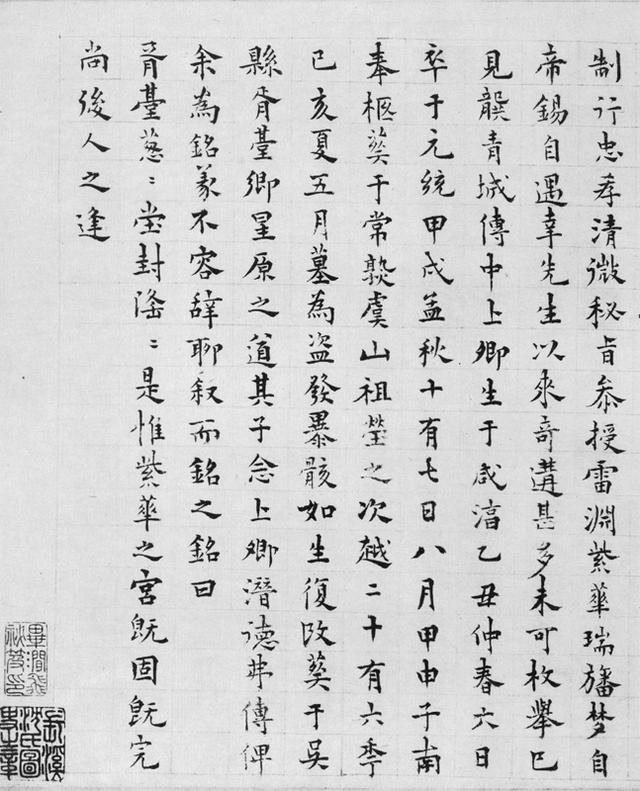 制行忠孝清微秘旨叅授雷淵紫華瑞旛梦自
帝錫自遇幸先生以來奇遘甚多未可枚舉已
見龔青城傳中上卿生于咸淳乙丑仲春六日
卒于元統甲戌孟秋十有七日八月甲申子南
奉柩葬于常熟虞山祖塋之次越二十有六季
己亥夏五月墓為盜發暴骸如生復改葬于吳
縣胥臺鄉星原之道其子念上卿潛德弗傳俾
余為銘義不容辭聊叙而銘之銘曰
胥臺蔥〻堂封滃〻是惟紫華之宮旣固旣完
尚後人之逢